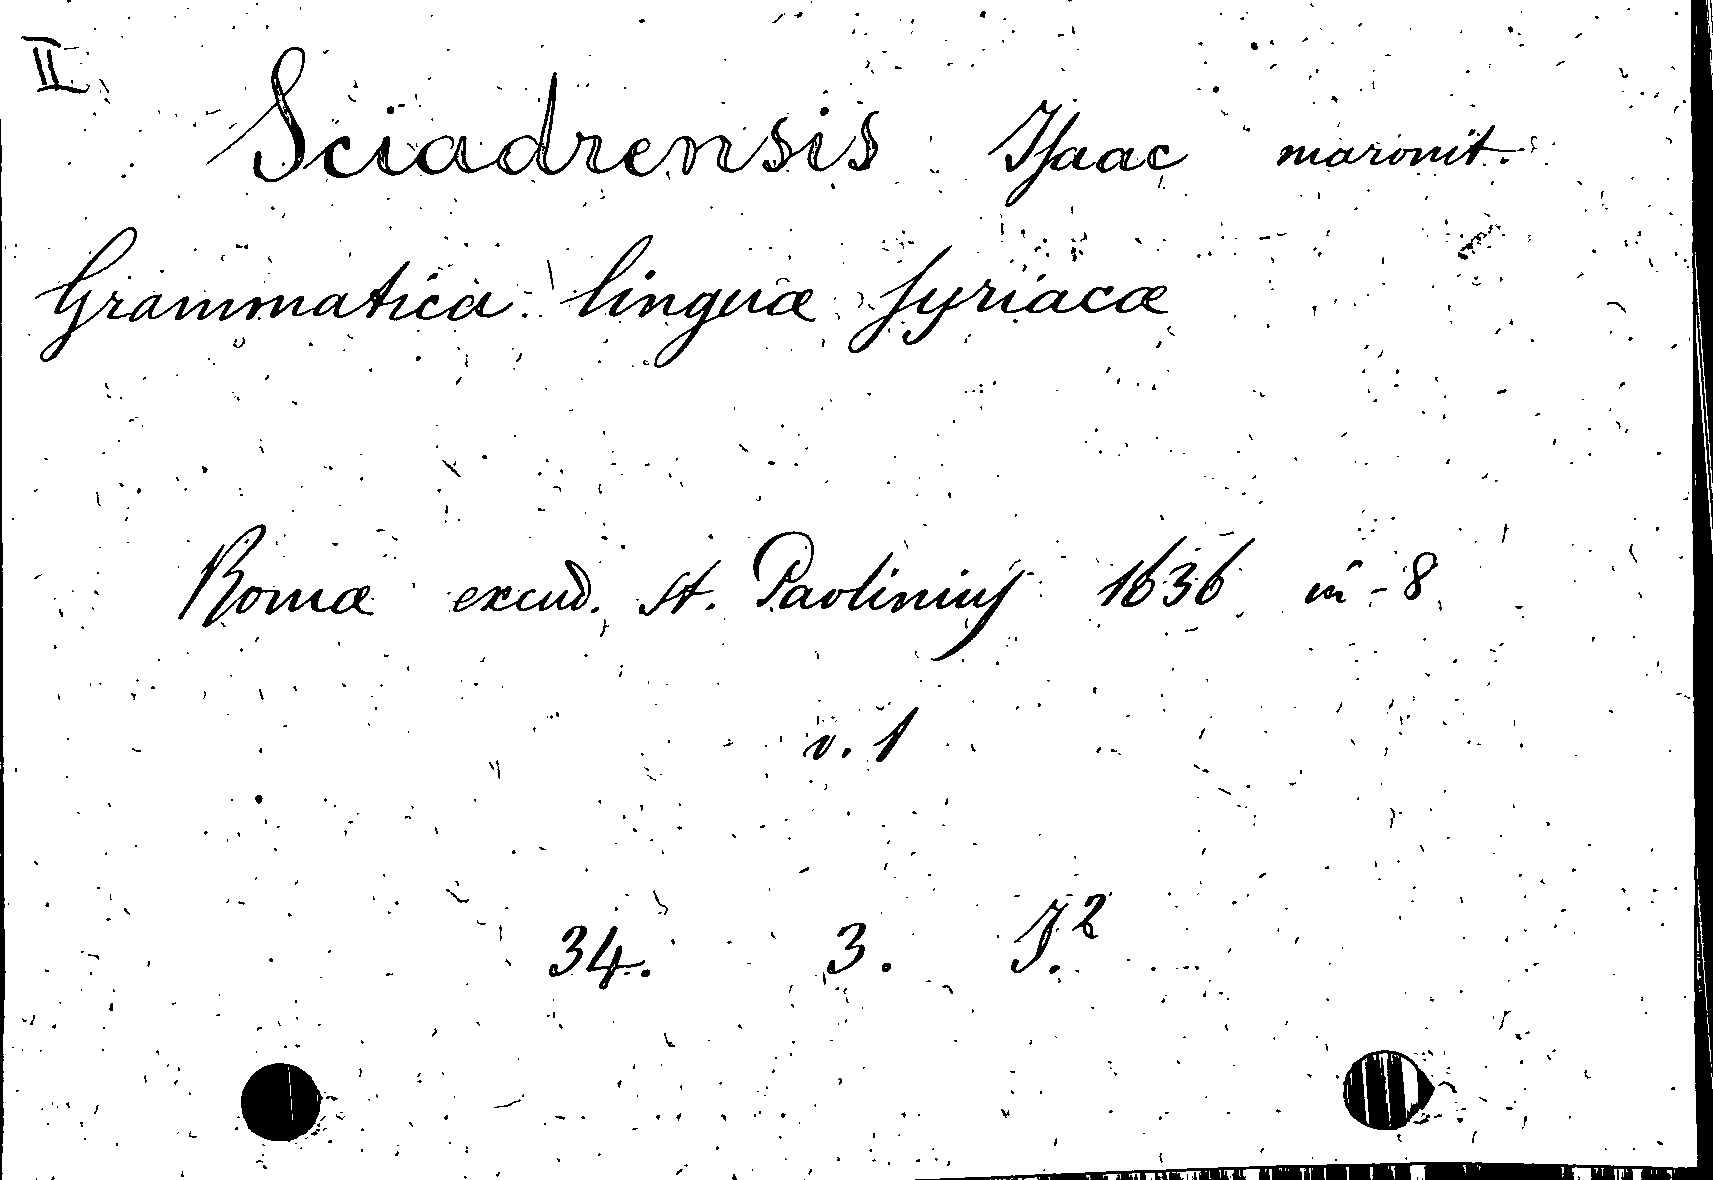 II
Sciadrensis Isaac maronit.
Grammatica linguæ syriacæ
Romæ excud. St. Paolinius 1636 in-8
v. 1
34. 3. J.²